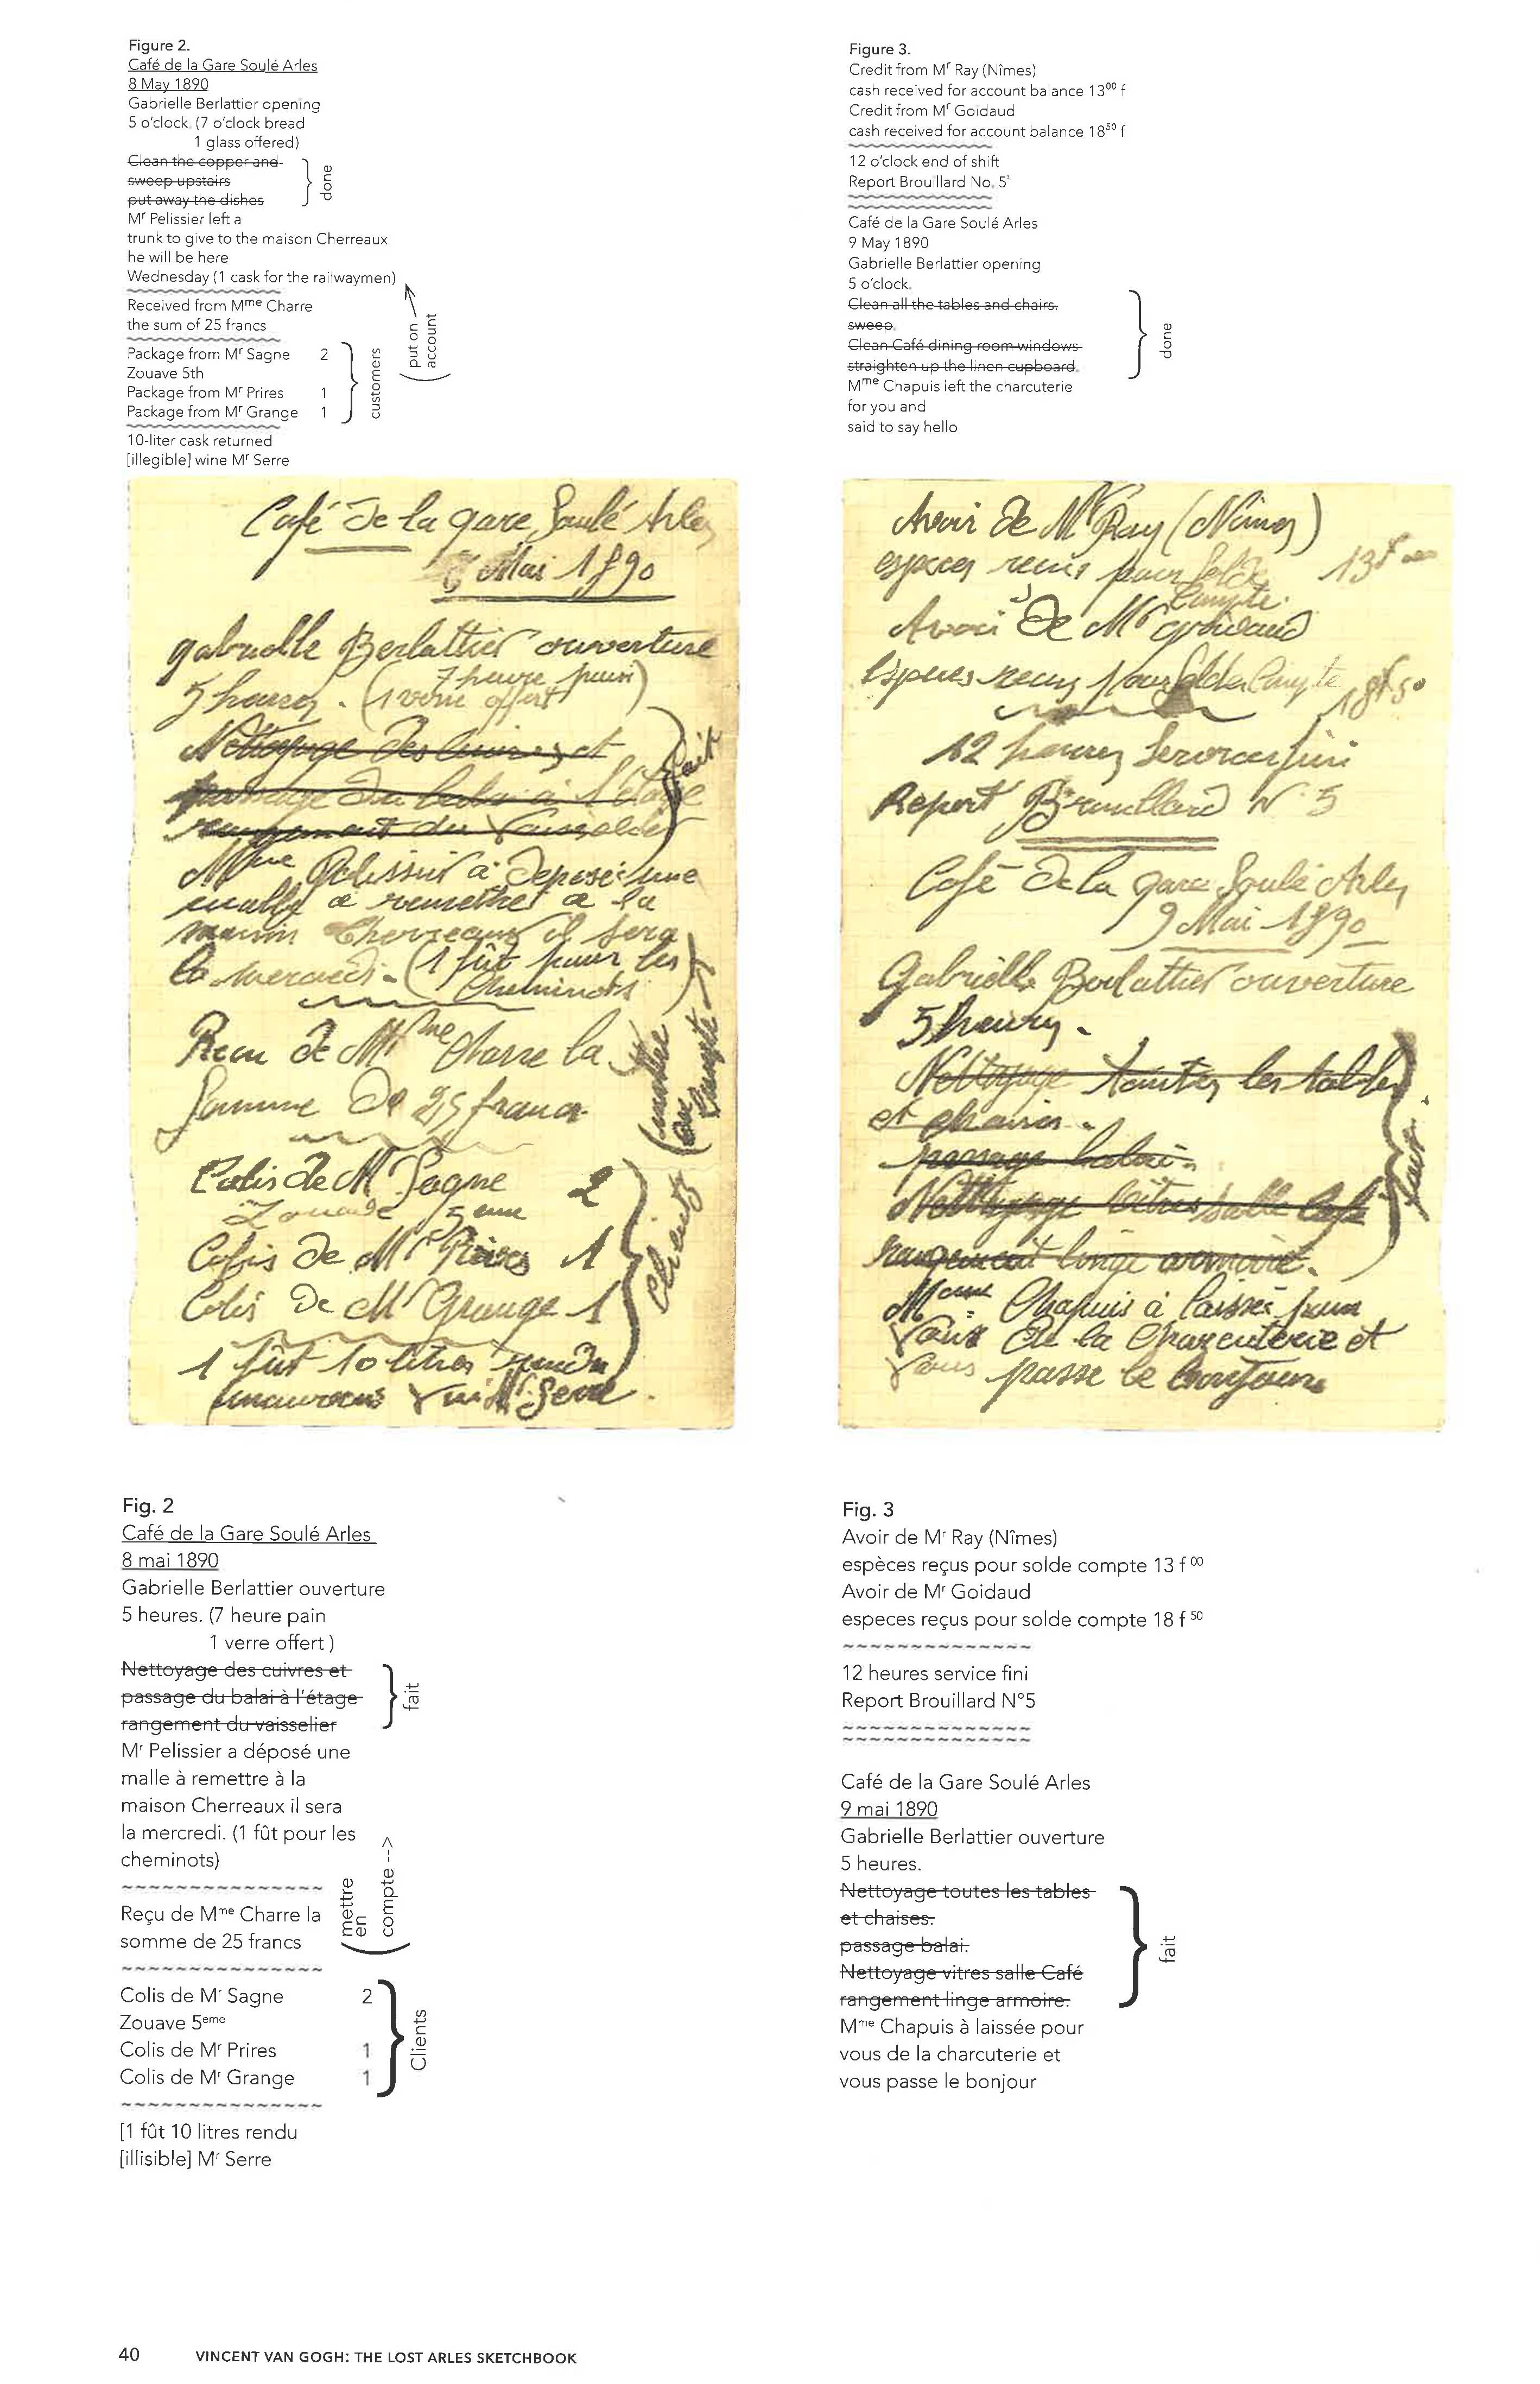 Figure 2.
Café de la Gare Soulé Arles
8 May 1890
Gabrielle Berlattier opening
5 o'clock. (7 o'clock bread
1 glass offered)
Clean the copper and
sweep upstairs
put away the dishes
done
Mr Pelissier left a
trunk to give to the maison Cherreaux
he will be here
Wednesday (1 cask for the railwaymen)
Received from Mme Charre
the sum of 25 francs
put on
account
Package from Mr Sagne 2
Zouave 5th
Package from Mr Prires 1
Package from Mr Grange 1
customers
10-liter cask returned
[illegible] wine Mr Serre
Figure 3.
Credit from Mr Ray (Nîmes)
cash received for account balance 1300 f
Credit from Mr Goidaud
cash received for account balance 1850 f
12 o'clock end of shift
Report Brouillard No. 5¹
Café de la Gare Soulé Arles
9 May 1890
Gabrielle Berlattier opening
5 o'clock.
Clean all the tables and chairs.
sweep.
Clean Café dining room windows
straighten up the linen cupboard.
done
Mme Chapuis left the charcuterie
for you and
said to say hello
Café de la gare Soulé Arles
Mai 1890
gabrielle Berlattier ouverture
5 heures. (7 heure pain
1 verre offert)
Nettoyage des cuivres et
passage du balai à l'étage
rangement du vaisselier
fait
Pelissier à déposé une
malle à remettre à la
maison Cherreaux il sera
la mercredi. (1 fût pour les
cheminots)
Recu de Mme Charre la
Somme de 25 francs
(mettre
en
compte
Colis de Mr Sagne 2
Zouave 5eme
Colis de Mr Prires 1
Colis de Mr Grange 1
Clients
1 fût 10 litres rendu
vin Mr Serre
Avoir de Mr Ray (Nîmes)
espèces recus pour Solde
Compte. 13f 00
Avoir de Mr goidaud
Espèces recus pour Solde Compte 18f 50
12 heures Service fini
Report Brouillard N° 5
Café de la gare Soulé Arles
9 Mai 1890
Gabrielle Berlattier ouverture
5 heures.
Nettoyage toutes les tables
et chaises.
passage balai.
Nettoyage vitres salle Café
rangement linge armoire.
fait.
Mme Chapuis à laissée pour
Vous de la Charcuterie et
Vous passe le bonjour
Fig. 2
Café de la Gare Soulé Arles
8 mai 1890
Gabrielle Berlattier ouverture
5 heures. (7 heure pain
1 verre offert )
Nettoyage des cuivres et
passage du balai à l'étage
rangement du vaisselier
fait
Mr Pelissier a déposé une
malle à remettre à la
maison Cherreaux il sera
la mercredi. (1 fût pour les
cheminots)
Reçu de Mme Charre la
somme de 25 francs
mettre
en
compte -->
Colis de Mr Sagne 2
Zouave 5eme
Colis de Mr Prires 1
Colis de Mr Grange 1
Clients
[1 fût 10 litres rendu
[illisible] Mr Serre
Fig. 3
Avoir de Mr Ray (Nîmes)
espèces reçus pour solde compte 13 f 00
Avoir de Mr Goidaud
especes reçus pour solde compte 18 f 50
12 heures service fini
Report Brouillard N°5
Café de la Gare Soulé Arles
9 mai 1890
Gabrielle Berlattier ouverture
5 heures.
Nettoyage toutes les tables
et chaises.
passage balai.
Nettoyage vitres salle Café
rangement linge armoire.
fait
Mme Chapuis à laissée pour
vous de la charcuterie et
vous passe le bonjour
40 VINCENT VAN GOGH: THE LOST ARLES SKETCHBOOK